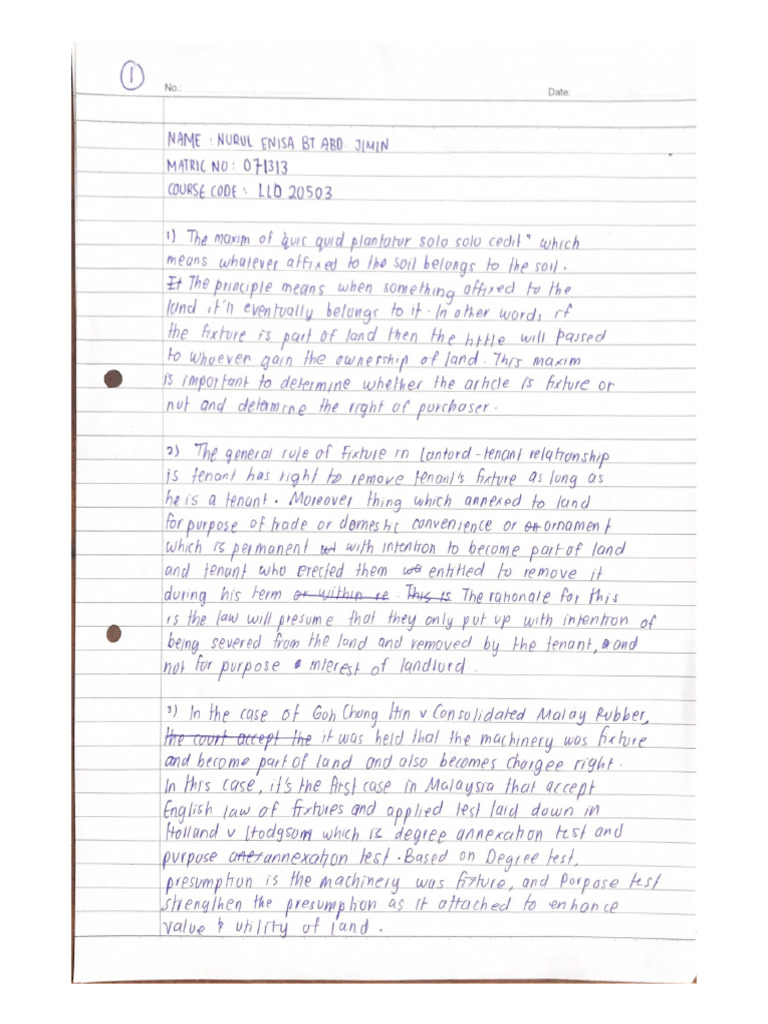 1
No.:
Date:
NAME : NURUL ENISA BT ABD. JIMIN
MATRIC NO : 071313
COURSE CODE : LLD 20503
1) The maxim of "quic quid plantatur solo solo cedit" which
means whatever affixed to the soil belongs to the soil.
It The principle means when something affixed to the
land it'll eventually belongs to it. In other words if
the fixture is part of land then the tittle will passed
to whoever gain the ownership of land. This maxim
is important to determine whether the article is fixture or
not and determine the right of purchaser.
2) The general rule of fixture in lantord-tenant relationship
is tenant has right to remove tenant's fixture as long as
he is a tenant. Moreover thing which annexed to land
for purpose of trade or domestic convenience or or ornament
which is permanent with intention to become part of land
and tenant who erected them entitled to remove it
during his term or within re. This is The rationale for this
is the law will presume that they only put up with intention of
being severed from the land and removed by the tenant, and
not for purpose interest of landlord.
3) In the case of Goh Chong Hin v Consolidated Malay Rubber,
the court accept the it was held that the machinery was fixture
and become part of land and also becomes chargee right.
In this case, it's the first case in Malaysia that accept
English law of fixtures and applied test laid down in
Holland v Hodgsom which is degree annexation test and
purpose annexation test. Based on Degree test,
presumption is the machinery was fixture, and Porpose test
strengthen the presumption as it attached to enhance
value & utility of land.